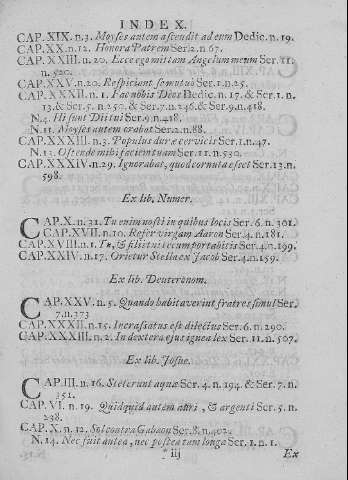 INDEX.
CAP. XIX. n. 3. Moyses autem ascendit ad eum Dedic. n. 19.
CAP. XX. n. 12. Honora Patrem Ser. 2. n. 67.
CAP. XXIII. n. 20. Ecce ego mittam Angelum meum Ser. 11.
n. 520.
CAP. XXV. n. 20. Respiciant se mutuò Ser. 1. n. 25.
CAP. XXXII. n. 1. Fac nobis Deos Dedic. n. 17. & Ser. 1. n.
13. & Ser. 5. n. 250. & Ser. 7. n. 246. & Ser. 9. n. 418.
N. 4. Hi sunt Dii tui Ser. 9. n. 418.
N. 11. Moyses autem orabat Ser. 2. n. 88.
CAP. XXXIII. n. 3. Populus duræ cervicis Ser. 1. n. 47.
N. 13. Ostende mihi faciem tuam Ser. 11. n. 530.
CAP. XXXIV. n. 29. Ignorabat, quod cornuta esset Ser. 13. n.
598.
Ex lib. Numer.
CAP. X. n. 31. Tu enim nosti in quibus locis Ser. 6. n. 301.
CAP. XVII. n. 10. Refer virgam Aaron Ser. 4. n. 181.
CAP. XVIII. n. 1. Tu, & filii tui tecum portabitis Ser. 4. n. 199.
CAP. XXIV. n. 17. Orietur Stella ex Jacob Ser. 4. n. 159.
Ex lib. Deuteronom.
CAP. XXV. n. 5. Quando habitaverint fratres simul Ser.
7. n. 373
CAP. XXXII. n. 15. Incrassatus est dilectus Ser. 6. n. 290.
CAP. XXXIII. n. 2. In dextera ejus ignea lex Ser. 11. n. 507.
Ex lib. Josue.
CAP. III. n. 16. Steterunt aquæ Ser. 4. n. 194. & Ser. 7. n.
351.
CAP. VI. n. 19. Quidquid autem auri, & argenti Ser. 5. n.
238.
CAP. X. n. 12. Sol contra Gabaon Ser. 8. n. 402.
N. 14. Nec fuit antea, nec postea tam longa Ser. 1. n. 1.
* iij Ex